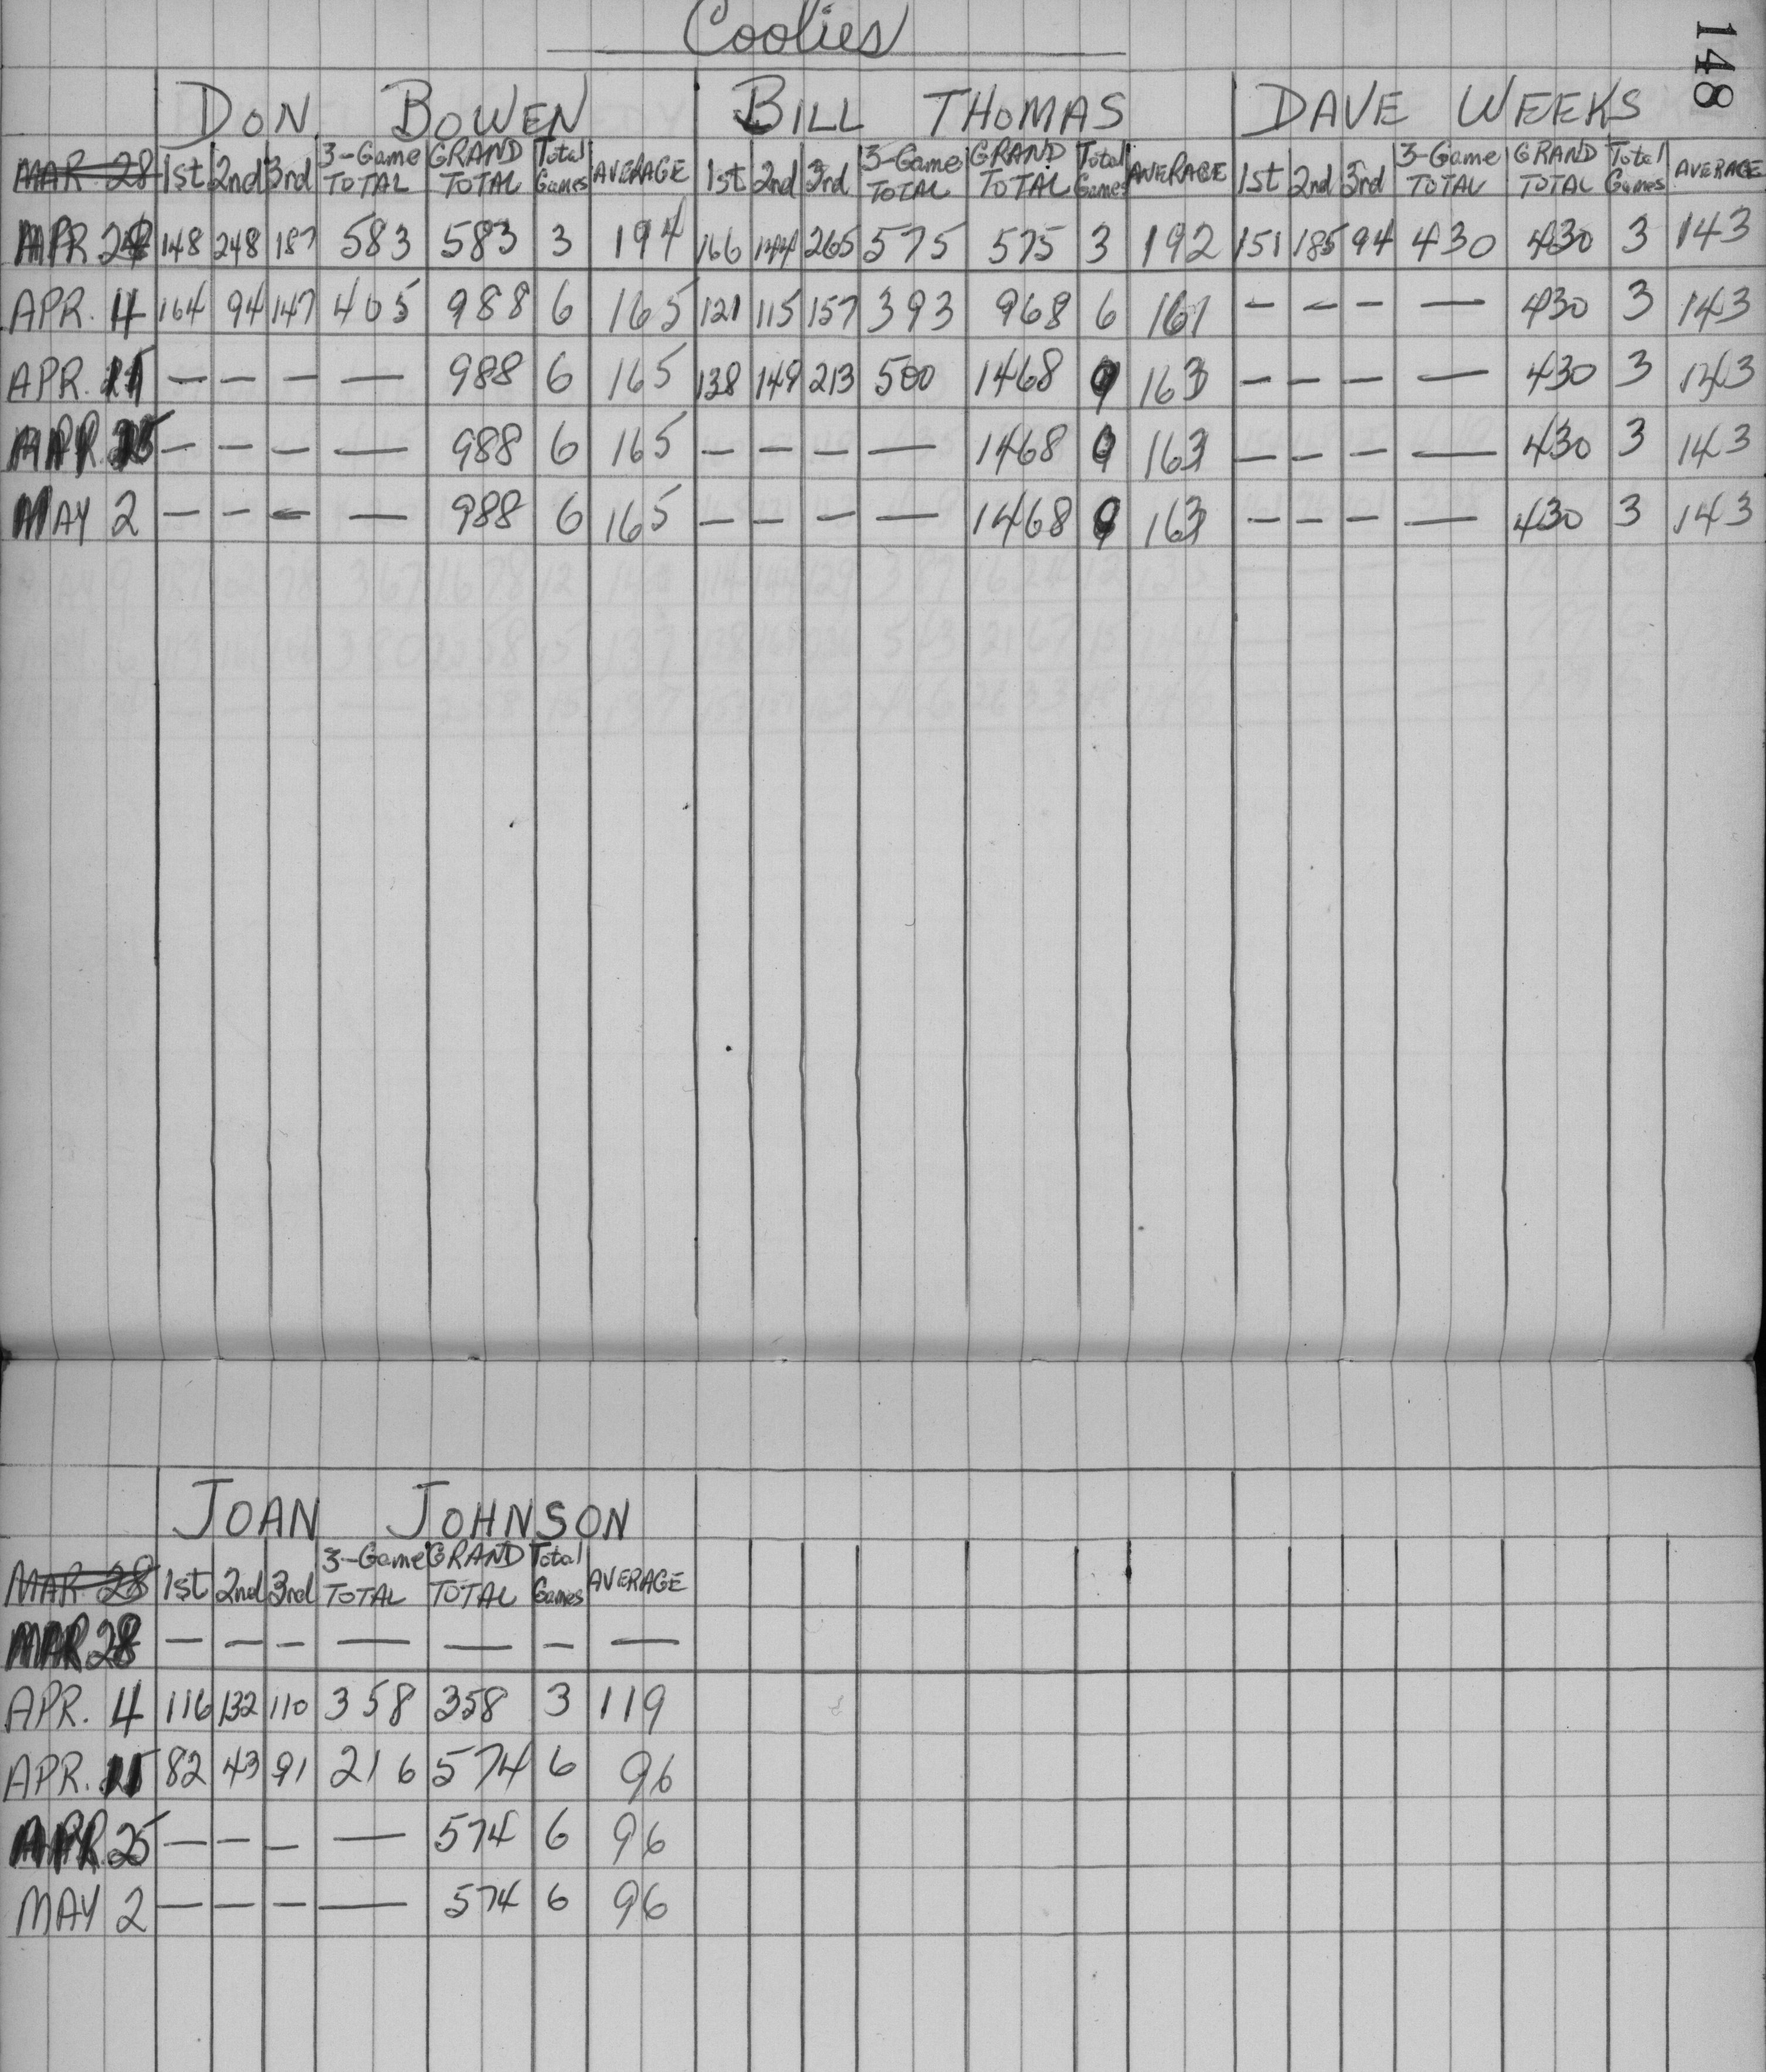 Coolies
148
DON BOWEN BILL THOMAS DAVE WEEKS
MAR 28 1st 2nd 3rd 3-Game TOTAL GRAND TOTAL Total Games AVERAGE 1st 2nd 3rd 3-Game TOTAL GRAND TOTAL Total Games AVERAGE 1st 2nd 3rd 3-Game TOTAL GRAND TOTAL Total Games AVERAGE
148 248 187 583 583 3 194 166 144 265 575 575 3 192 151 185 94 430 430 3 143
APR. 4 164 94 147 405 988 6 165 121 115 157 393 968 6 161 - - - - 430 3 143
APR. - - - - 988 6 165 138 149 213 500 1468 9 163 - - - - 430 3 143
- - - - 988 6 165 - - - - 1468 9 163 - - - - 430 3 143
MAY 2 - - - - 988 6 165 - - - - 1468 9 163 - - - - 430 3 143
JOAN JOHNSON
MAR 28 1st 2nd 3rd 3-Game TOTAL GRAND TOTAL Total Games AVERAGE
MAR 28 - - - - - - -
APR. 4 116 132 110 358 358 3 119
APR. 82 43 91 216 574 6 96
APR. 25 - - - - 574 6 96
MAY 2 - - - - 574 6 96